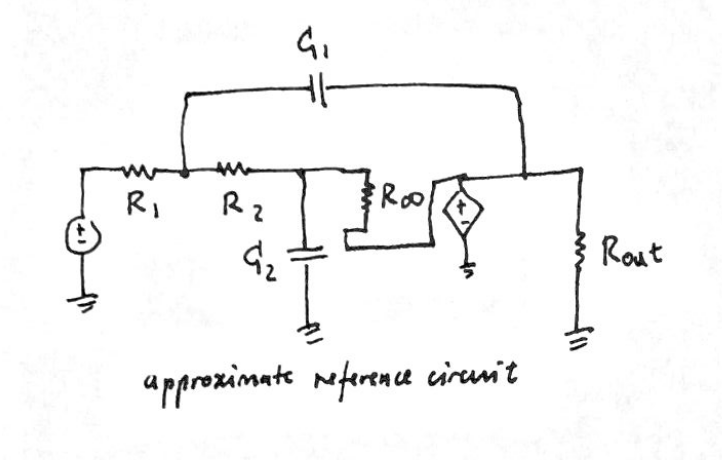 C₁
R₁
R₂
R∞
C₂
Rout
approximate reference circuit